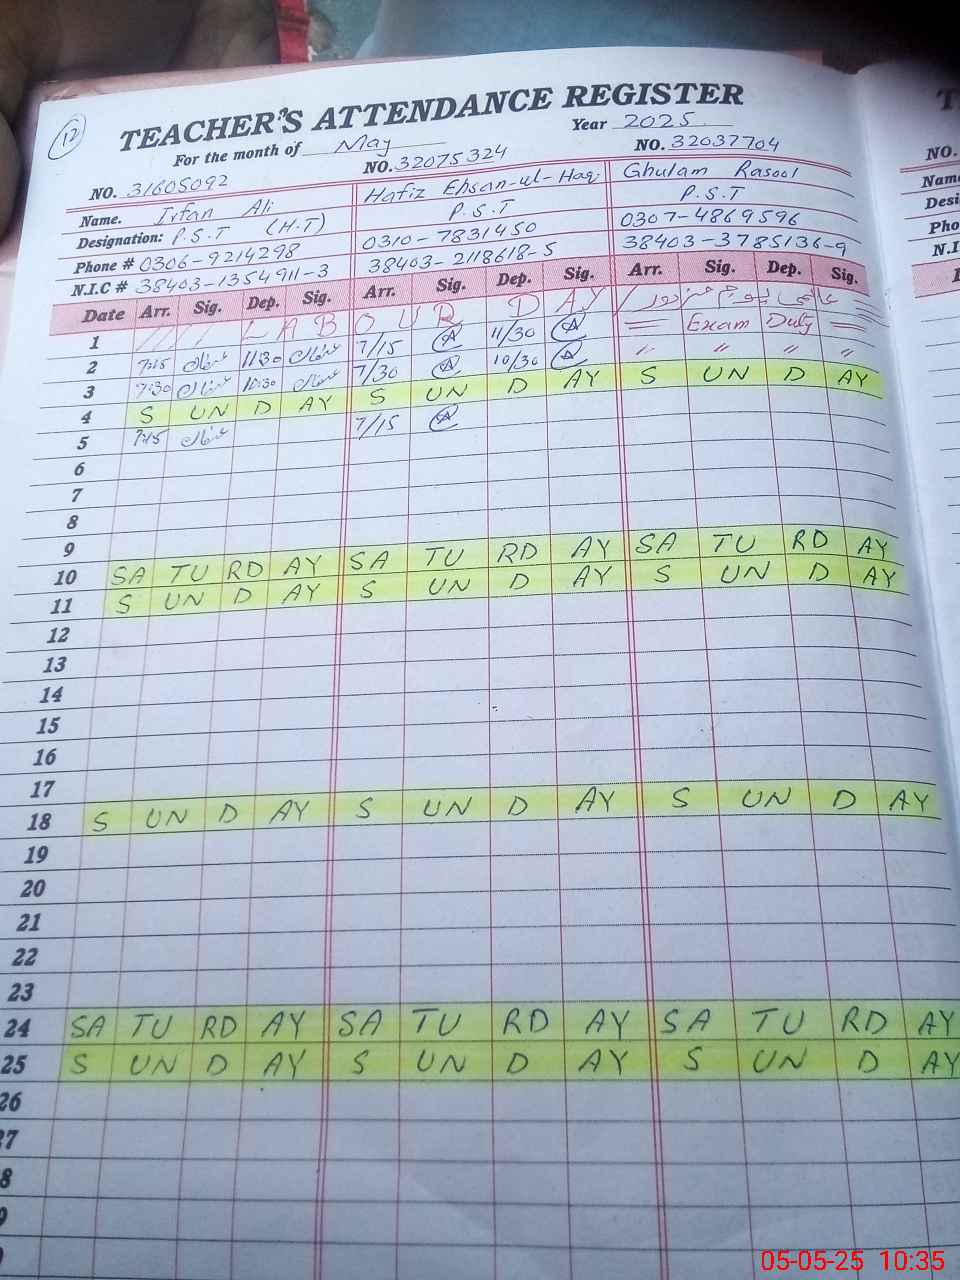 12
TEACHER'S ATTENDANCE REGISTER
For the month of May Year 2025
NO. 31605092 NO. 32075324 NO. 32037704 NO.
Name. Irfan Ali Hafiz Ehsan-ul-Haq Ghulam Rasool Name
Designation: P.S.T (H.T) P.S.T P.S.T Desi
Phone # 0306-9214298 0310-7831450 0307-4869596 Pho
N.I.C # 38403-1354911-3 38403-2118618-5 38403-3785136-9 N.I
Date Arr. Sig. Dep. Sig. Arr. Sig. Dep. Sig. Arr. Sig. Dep. Sig.
1 LABOUR DAY عالمی یوم مزدور
2 7:15 11:30 7/15 11/30 Exam Duty
3 7:30 10:30 7/30 10/30 " " " "
4 S UN D AY S UN D AY S UN D AY
5 7:15 7/15
6
7
8
9
10 SA TU RD AY SA TU RD AY SA TU RD AY
11 S UN D AY S UN D AY S UN D AY
12
13
14
15
16
17
18 S UN D AY S UN D AY S UN D AY
19
20
21
22
23
24 SA TU RD AY SA TU RD AY SA TU RD AY
25 S UN D AY S UN D AY S UN D AY
26
27
8
9
05-05-25 10:35